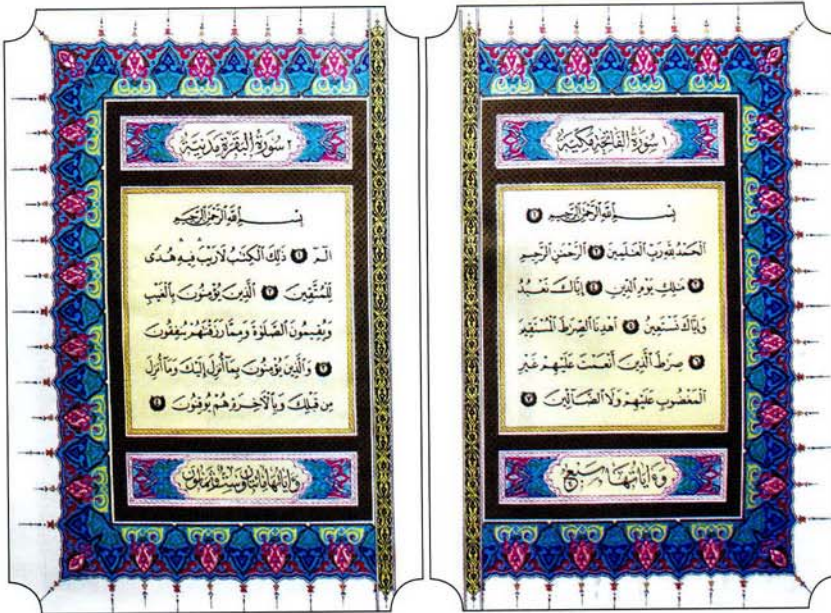 ١ سُورَةُ الفَاتِحَةِ مَكِّيَّة
بِسْمِ ٱللَّهِ ٱلرَّحْمَٰنِ ٱلرَّحِيمِ ١
ٱلْحَمْدُ لِلَّهِ رَبِّ ٱلْعَٰلَمِينَ ٢ ٱلرَّحْمَٰنِ ٱلرَّحِيمِ
٣ مَٰلِكِ يَوْمِ ٱلدِّينِ ٤ إِيَّاكَ نَعْبُدُ
وَإِيَّاكَ نَسْتَعِينُ ٥ ٱهْدِنَا ٱلصِّرَٰطَ ٱلْمُسْتَقِيمَ
٦ صِرَٰطَ ٱلَّذِينَ أَنْعَمْتَ عَلَيْهِمْ غَيْرِ
ٱلْمَغْضُوبِ عَلَيْهِمْ وَلَا ٱلضَّآلِّينَ ٧
وَءَايَاتُهَا سَبْعٌ
٢ سُورَةُ البَقَرَةِ مَدَنِيَّة
بِسْمِ ٱللَّهِ ٱلرَّحْمَٰنِ ٱلرَّحِيمِ
الٓمٓ ١ ذَٰلِكَ ٱلْكِتَٰبُ لَا رَيْبَ فِيهِ هُدًى
لِّلْمُتَّقِينَ ٢ ٱلَّذِينَ يُؤْمِنُونَ بِٱلْغَيْبِ
وَيُقِيمُونَ ٱلصَّلَوٰةَ وَمِمَّا رَزَقْنَٰهُمْ يُنفِقُونَ
٣ وَٱلَّذِينَ يُؤْمِنُونَ بِمَآ أُنزِلَ إِلَيْكَ وَمَآ أُنزِلَ
مِن قَبْلِكَ وَبِٱلْءَاخِرَةِ هُمْ يُوقِنُونَ ٤
وَءَايَاتُهَا مِائَتَانِ وَسِتٌّ وَثَمَانُونَ